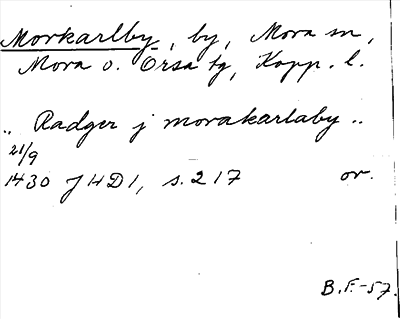 Morkarlby, by, Mora sn,
Mora o. Orsa tg, Kopp. l.
„ Radger j morakarlaby „
21/9
1430 JHD1, s. 217 or.
B.F.-57.